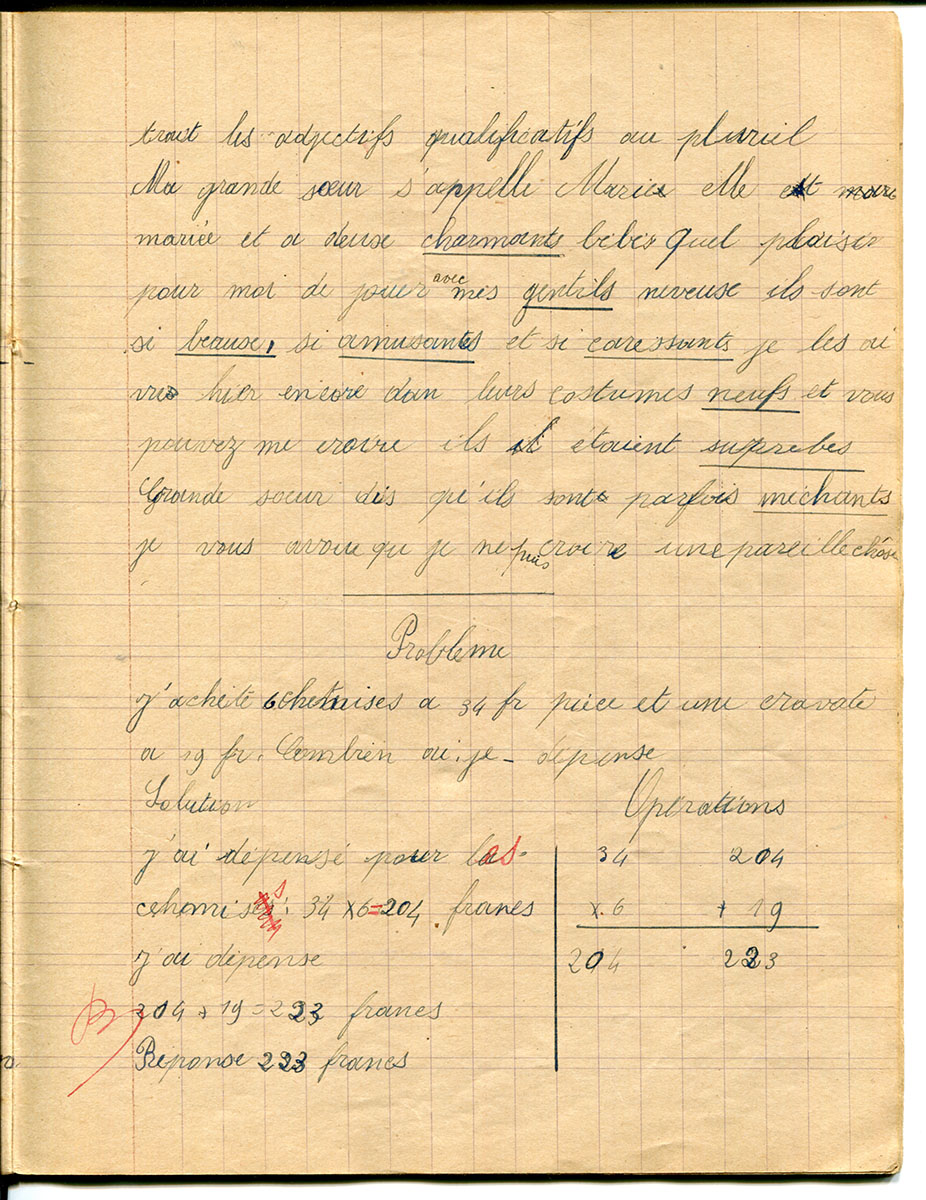 trait les adjectifs qualificatifs au pluriel
Ma grande sœur s'appelle Marie elle est
mariée et a deuse charmants bébés quel plaisir
pour moi de jouer avec mes gentils neveuse ils sont
si beause, si amusants et si caressants je les ai
vus hier encore dan leurs costumes neufs et vous
pouvez me croire ils étaient suprebes
Grande sœur dis qu'ils sont parfois méchants
je vous avoue qu je ne puis croire une pareille chose
Probleme
j'achète 6 chemises a 34 fr pièce et une cravate
a 19 fr. Combien ai-je dépense
Solution Opérations
j'ai dépensé pour les 34 204
chemises: 34 x 6 = 204 francs x 6 + 19
j'ai dépense 204 223
204 + 19 = 223 francs
B
Réponse 223 francs